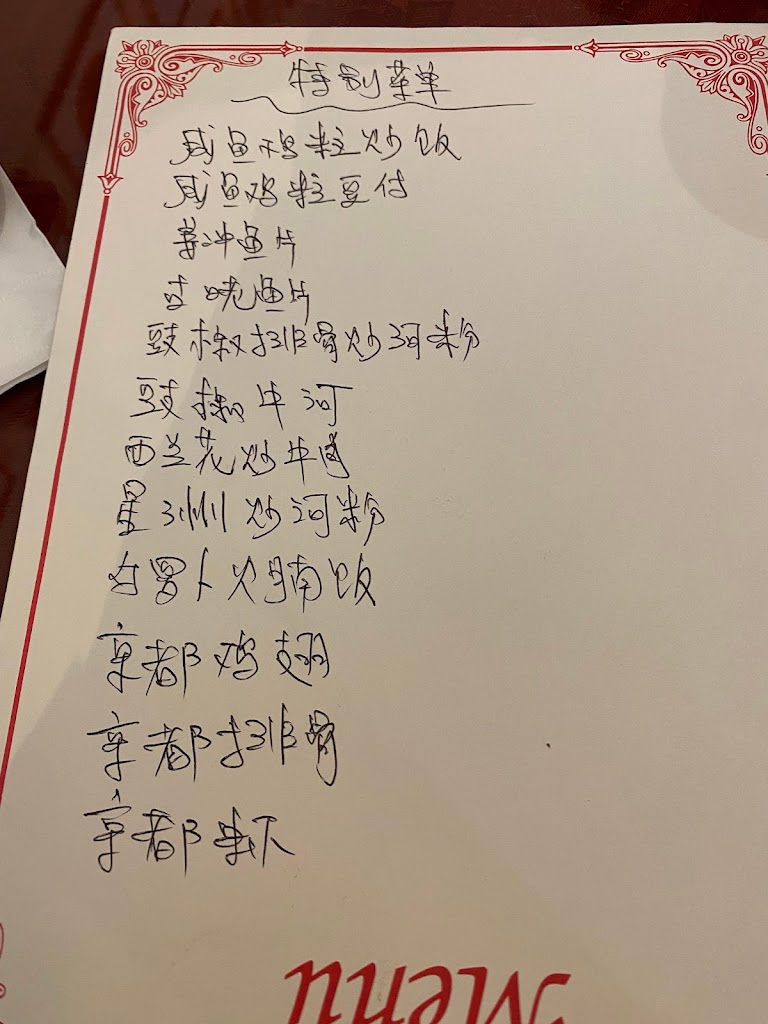 特别菜单
咸鱼鸡粒炒饭
咸鱼鸡粒豆付
姜冲鱼片
鱼片
豉椒排骨炒河粉
豉椒牛河
西兰花炒牛肉
星洲炒河粉
白萝卜火腩饭
京都鸡翅
京都排骨
京都虾
Menu